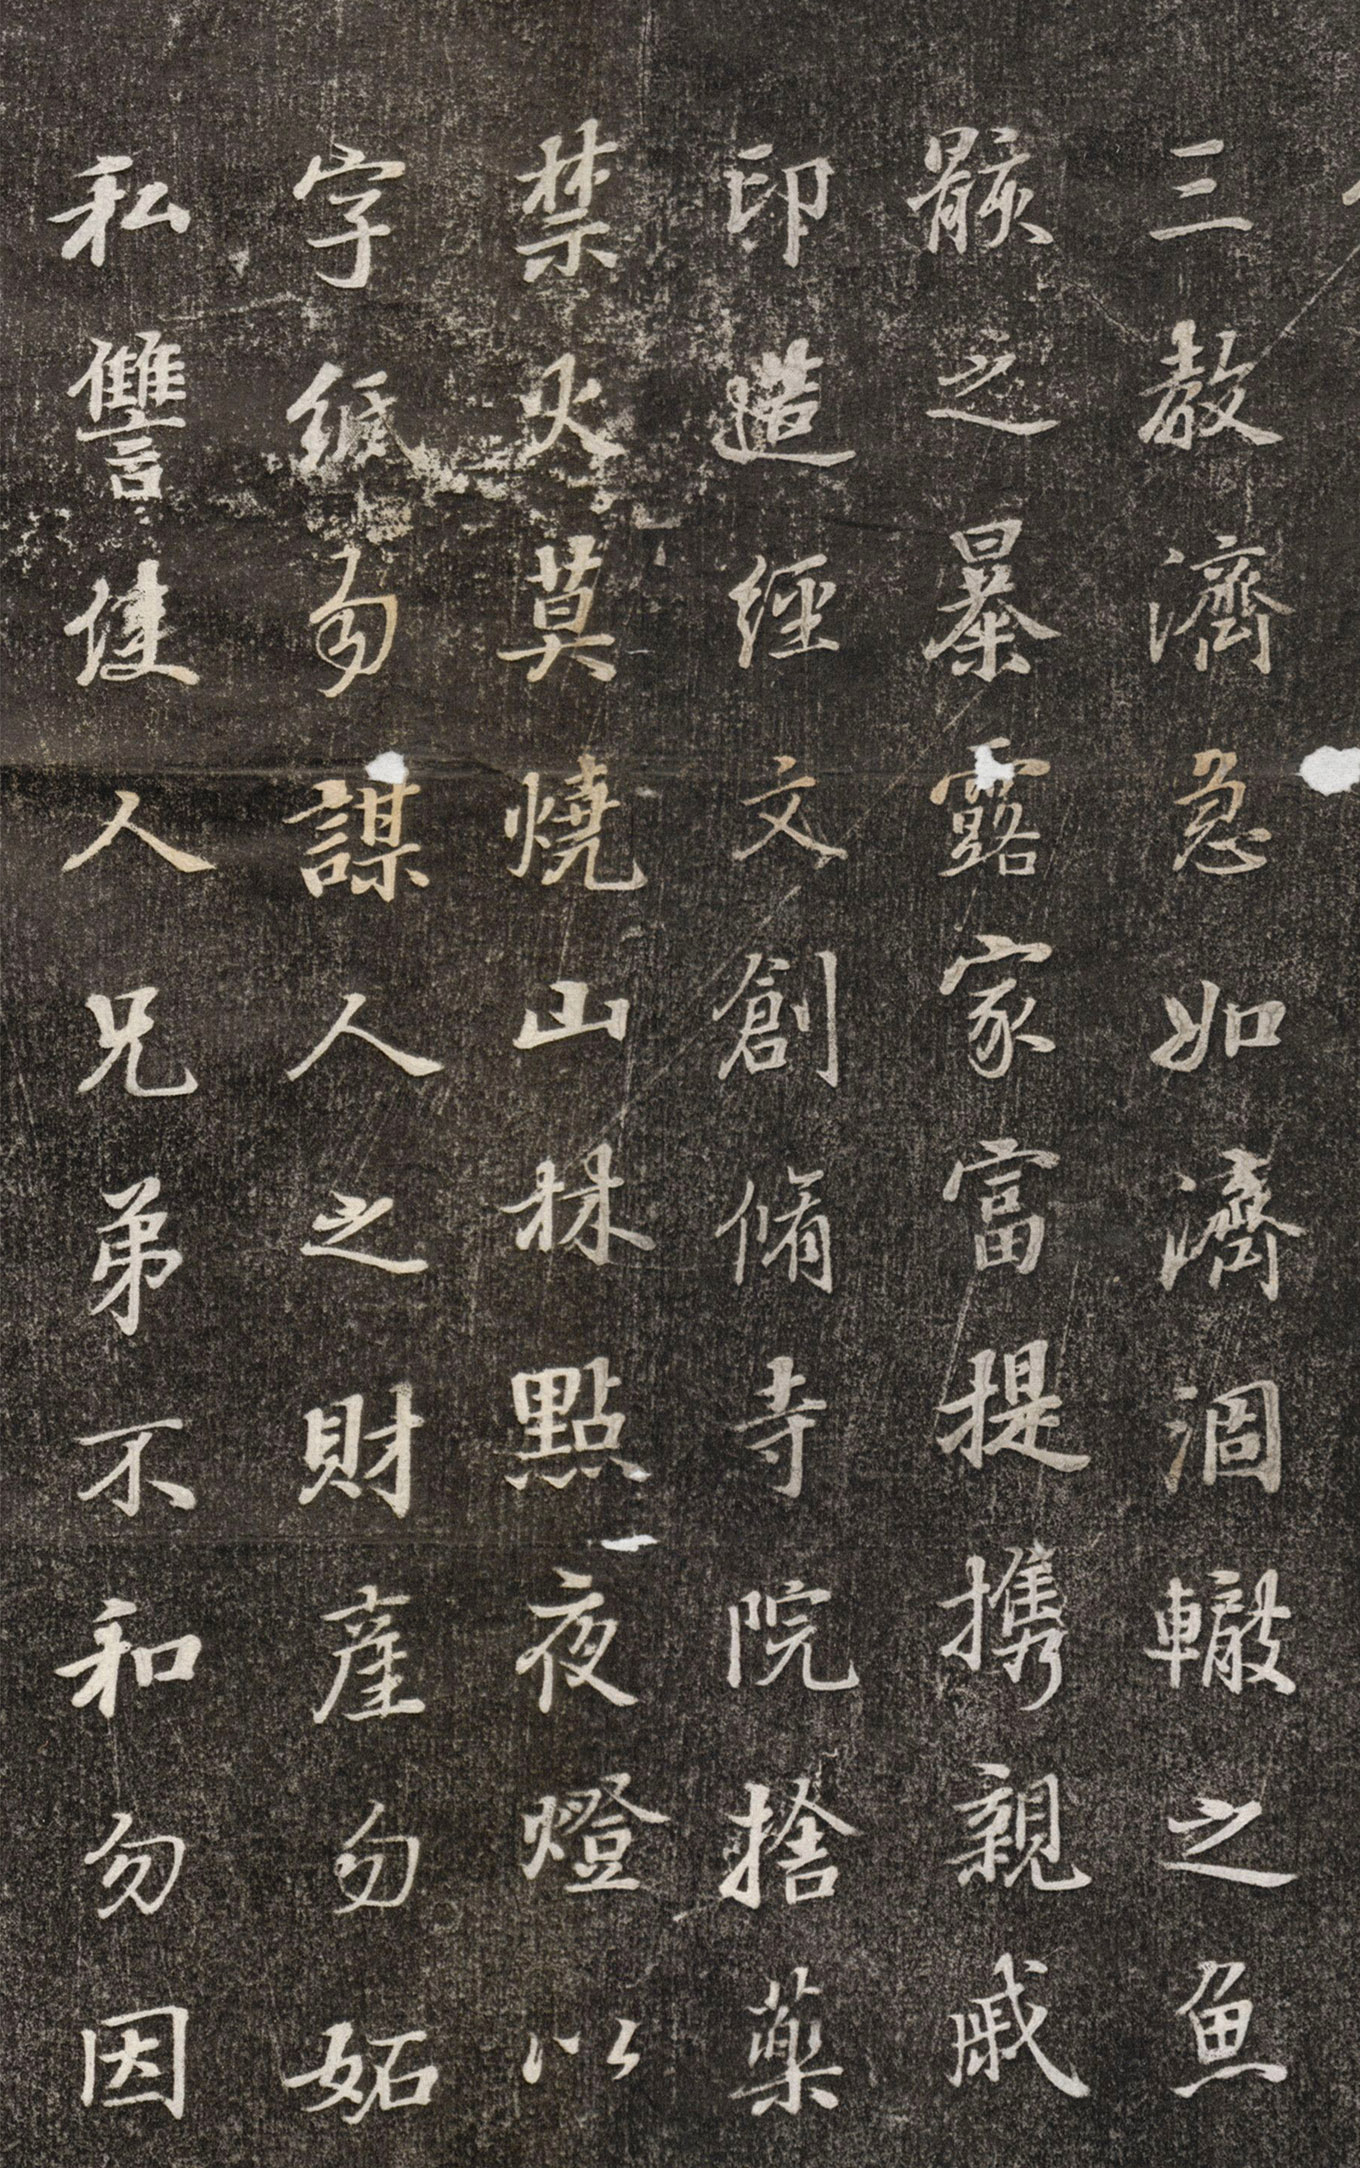 三教濟急如濟涸轍之魚
骸之暴露家富提攜親戚
印造經文創脩寺院捨藥
禁火莫燒山林點夜燈以
字紙勿謀人之財產勿妬
私讐使人兄弟不和勿因